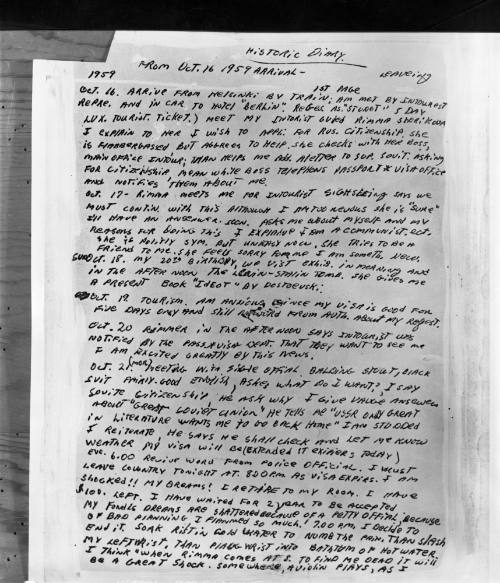 HistoRic DiARy
FRom Oct. 16 1959 ARRivAL — LeAveing
1959 1st PAge
Oct. 16. ARRive FRom HeLsinki by TRAin; Am met by INtouRist
RepRe. And in CAR to HoteL "BeRLin". Reges. As "student" 5 DAy
Lux. TouRist. Ticket.) Meet my INtouRist guied RimmA SheRikovA
I explAin to HeR I wish to Appli. foR Rus. citizenship. she
is FLAbbeRgAssed but AgRees to HeLp. she checks with HeR Boss,
mAin oFFice INtouR; thAn HeLps me Add. A LetteR to Sup. Sovit. Asking
FoR Citizenship, meAn while BoSS teLephons PASSpoRt & VisA oFFice
And notifies them About me.
Oct. 17 - RimmA meets me foR INtouRist sightseeing sAys we
must contin. with this ALthough I Am too neRvous she is "suRe"
I'll HAve An AnseweR. soon. Asks me About myseLf And my
ReAsons foR Doing this I explAin I Am A communist, ect.
She is PoLitLy sym. but uneAsy now. She tRies to be A
FRiend to me. she FeeLs soRRy foR me I Am someth. new.
Sun Oct. 18. my 20th BiRthDAy, we visit exhib. in moRning And
in the AFteR noon the Lenin-StALin tomb. She gives me
A pResent Book "Ideot" by Dostoevski:
Oct. 19 TouRism. Am Anxious since my visA is good foR
five DAys onLy And stiLL no woRd FRom Auth. About my Reqest.
Oct. 20 RimmeR in the AFteR noon sAys INtouRist wAs
notified by the PASS & visA Dept. thAt they wAnt to see me
I Am excited gReAtLy by this news.
Oct. 21. (moR) meeting with singLe oFFiciAL. BALding stout, BLAck
suit FAiRLy. good engLish, Asks whAt do I wAnt?, I sAy
Sovite citizenship, He Ask why I give vAuge AnsweRs
About "GReAt Soviet Union" He teLLs me "USSR onLy gReAt
in LiteRAtuRe wAnts me to go bAck Home" I Am stunned
I ReiteRAte He sAys He shALL check And Let me know
weAtheR my visA wiLL be (extended it exipiRes todAy)
eve. 6.00 Recive woRd FRom poLice officiAL. I must
LeAve countRy tonight At. 8.00 P.m. As visA expiRs. I Am
shocked!! my DReAms! I RetiRe to my Room. I HAve
$100. Left. I HAve wAited foR 2 yeAR to be Accepted
my fondes DReAms ARe shAtteRed becAuse of A petty officiAL, becAuse
of bAd pLAnning I pLAnned so much! 7.00 P.m. I decide to
end it. SoAk Rist in coLd wAteR to numb the pAin. ThAn sLAsh
my LeftwRist. thAn pLAug wRist into bAthtum of Hot wAteR.
I think "when RimmA comes At 8. to find me deAd it wiLL
be A gReAt shock. somewheRe, A vioLin pLAys, As I